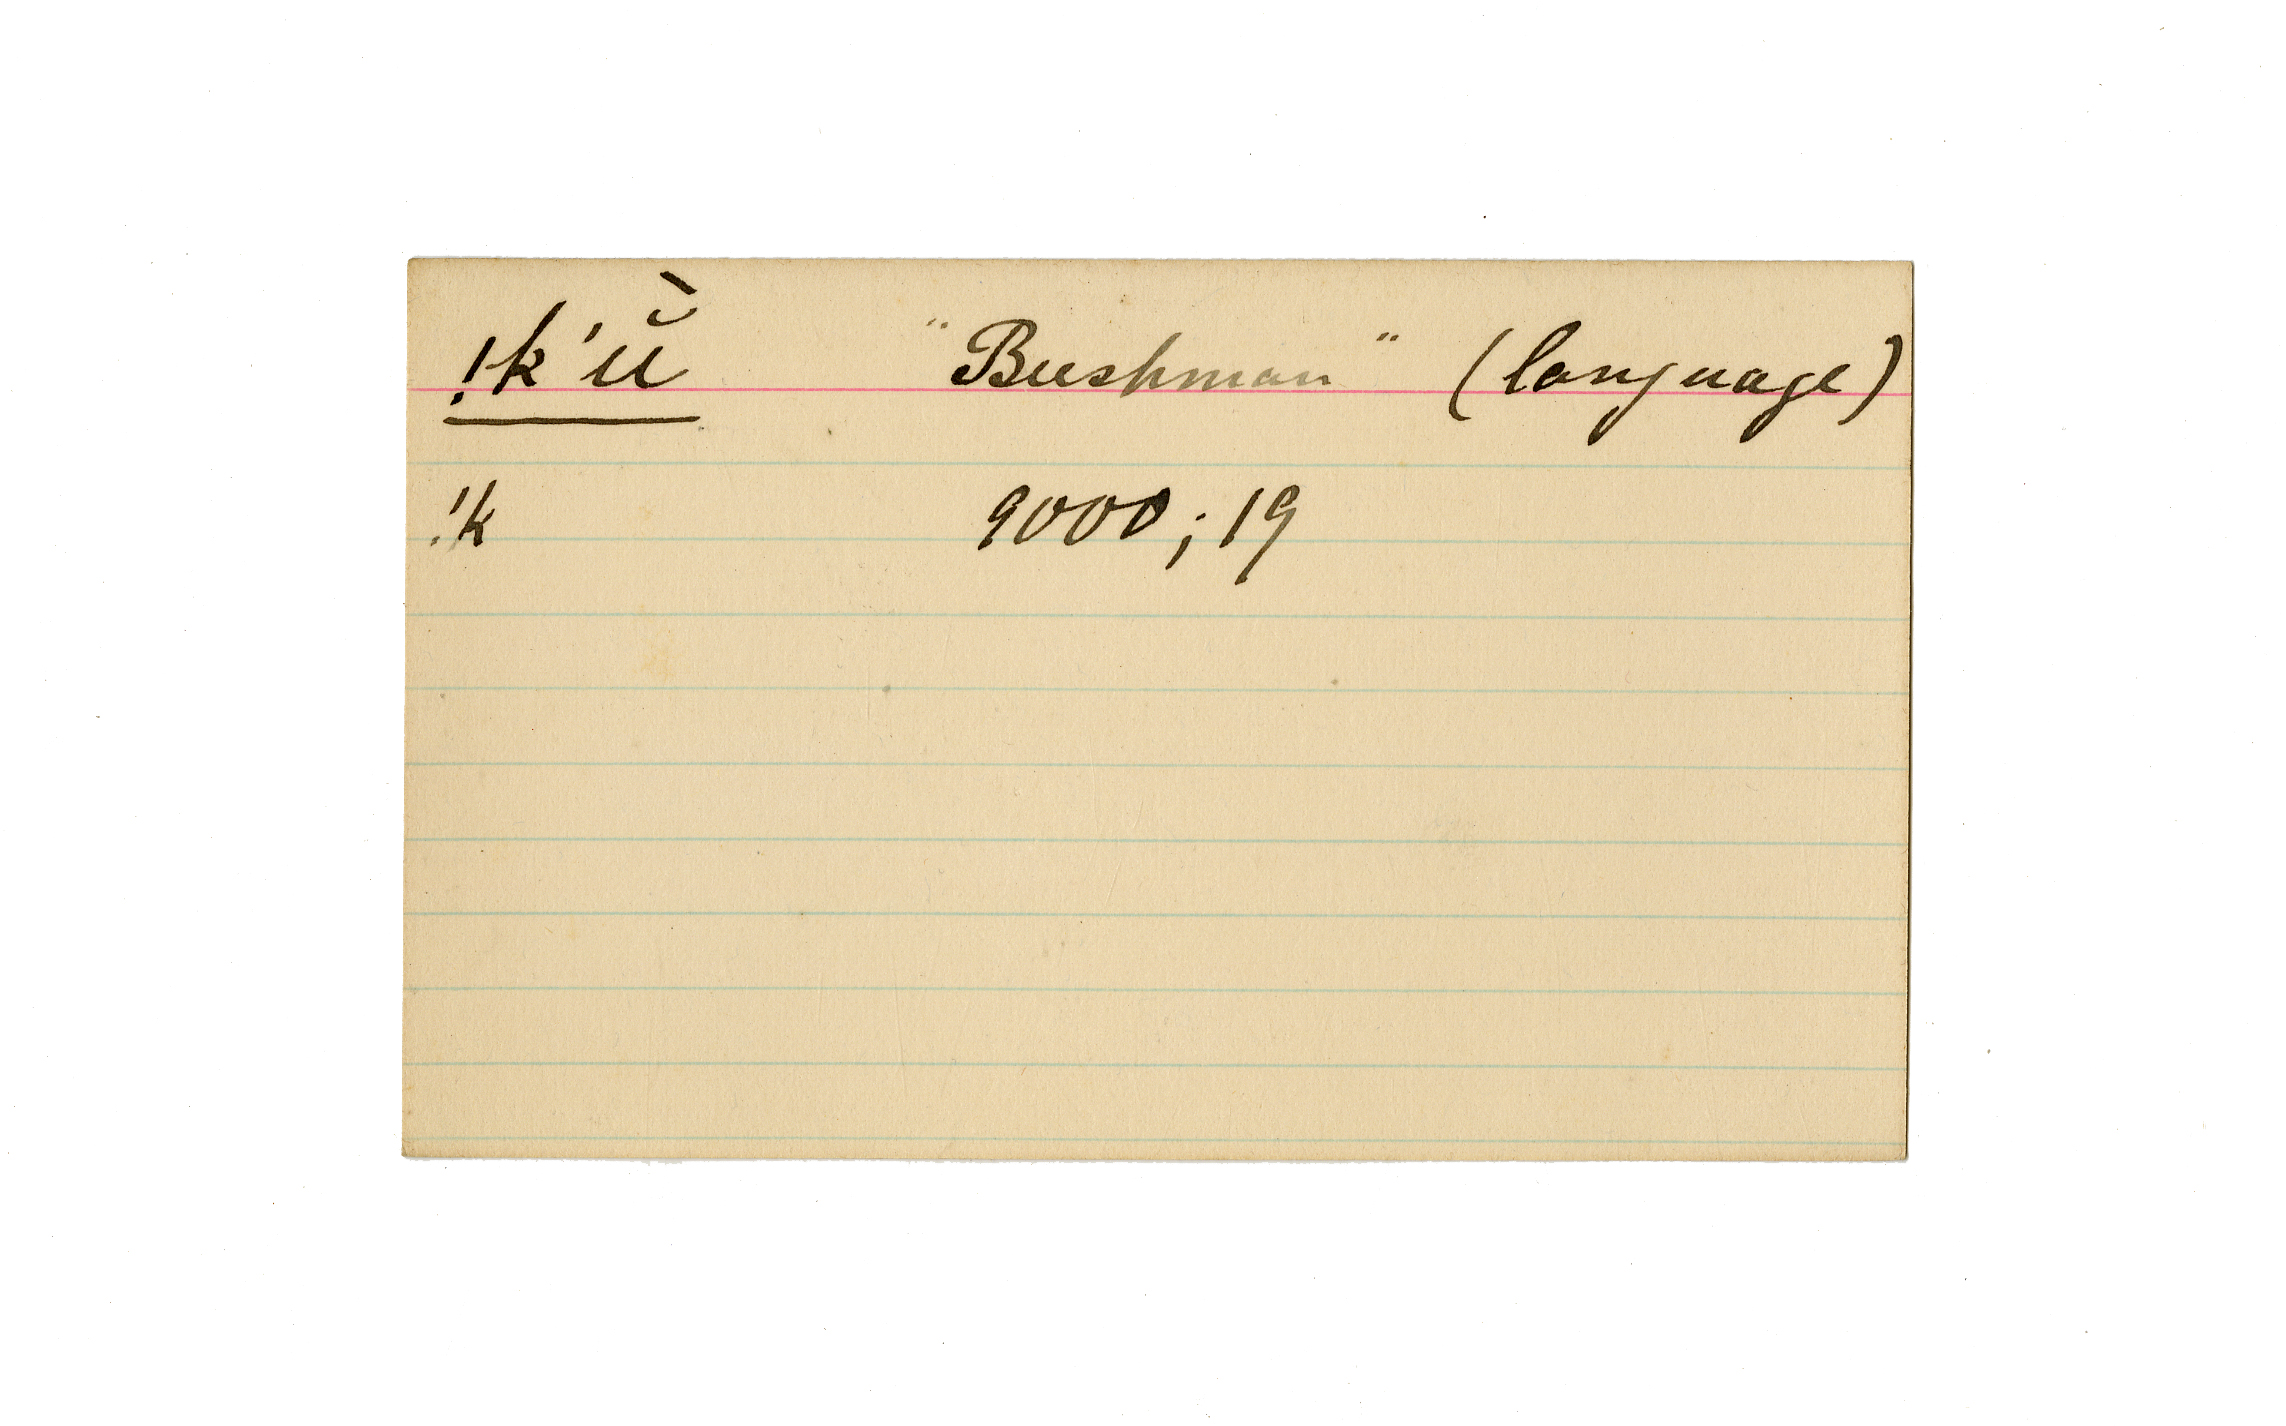 !k'ŭ̀ "Bushman" (language)
!k 9000; 19